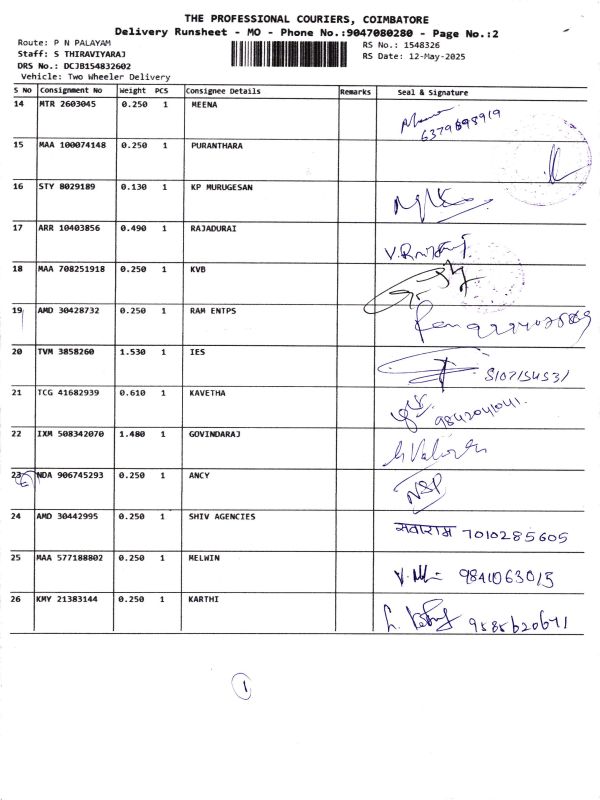 THE PROFESSIONAL COURIERS, COIMBATORE
Delivery Runsheet - MO - Phone No.:9047080280 - Page No.:2
Route: P N PALAYAM
Staff: S THIRAVIYARAJ
DRS No.: DCJB154832602
Vehicle: Two Wheeler Delivery
RS No.: 1548326
RS Date: 12-May-2025
S No Consignment No Weight PCS Consignee Details Remarks Seal & Signature
14 MTR 2603045 0.250 1 MEENA
6379698919
15 MAA 100074148 0.250 1 PURANTHARA
16 STY 8029189 0.130 1 KP MURUGESAN
17 ARR 10403856 0.490 1 RAJADURAI
18 MAA 708251918 0.250 1 KVB
19 AMD 30428732 0.250 1 RAM ENTPS
20 TVM 3858260 1.530 1 IES
21 TCG 41682939 0.610 1 KAVETHA
9842041041.
22 IXM 508342070 1.480 1 GOVINDARAJ
23 NDA 906745293 0.250 1 ANCY
NSP
24 AMD 30442995 0.250 1 SHIV AGENCIES
सवाराम 7010285605
25 MAA 577188802 0.250 1 MELWIN
26 KMY 21383144 0.250 1 KARTHI
9585620671
1